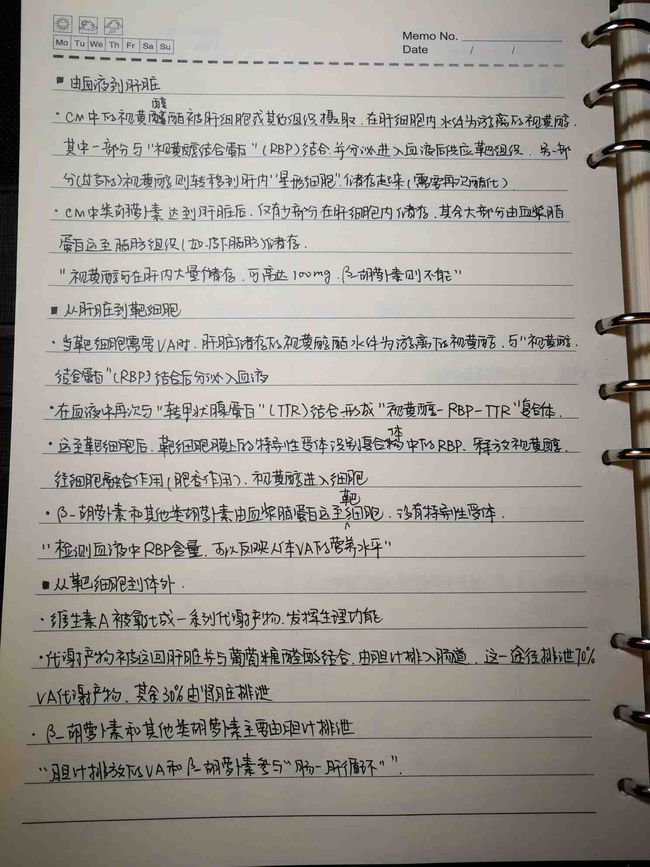 Memo No.
Mo Tu We Th Fr Sa Su
Date / /
■ 由血液到肝脏
· CM中的视黄醇酯被肝细胞或其他组织摄取. 在肝细胞内水解为游离的视黄醇.
其中一部分与"视黄醇结合蛋白"(RBP)结合并分泌进入血液后供应靶组织. 另一部
分(过多的)视黄醇则转移到肝内"星形细胞"储存起来(需要再次酯化).
· CM中类胡萝卜素达到肝脏后. 仅有少部分在肝细胞内储存. 其余大部分由血浆脂
蛋白运至脂肪组织(如:皮下脂肪)储存.
"视黄醇可在肝内大量储存, 可高达100mg. β-胡萝卜素则不能"
■ 从肝脏到靶细胞
· 当靶细胞需要VA时. 肝脏储存的视黄醇酯水解为游离的视黄醇. 与"视黄醇.
结合蛋白"(RBP)结合后分泌入血液
· 在血液中再次与"转甲状腺蛋白"(TTR)结合形成"视黄醇-RBP-TTR"复合体.
· 运至靶细胞后. 靶细胞膜上的特异性受体识别复合体中的RBP. 释放视黄醇.
经细胞融合作用(胞吞作用). 视黄醇进入细胞
· β-胡萝卜素和其他类胡萝卜素由血浆脂蛋白运至靶细胞. 没有特异性受体.
"检测血液中RBP含量. 可以反映人体VA的营养水平"
■ 从靶细胞到体外.
· 维生素A被氧化成一系列代谢产物. 发挥生理功能
· 代谢产物被运回肝脏并与葡萄糖醛酸结合. 由胆汁排入肠道. 这一途径排泄70%
VA代谢产物. 其余30%由肾脏排泄
· β-胡萝卜素和其他类胡萝卜素主要由胆汁排泄
"胆汁排放的VA和β-胡萝卜素参与"肠-肝循环"".